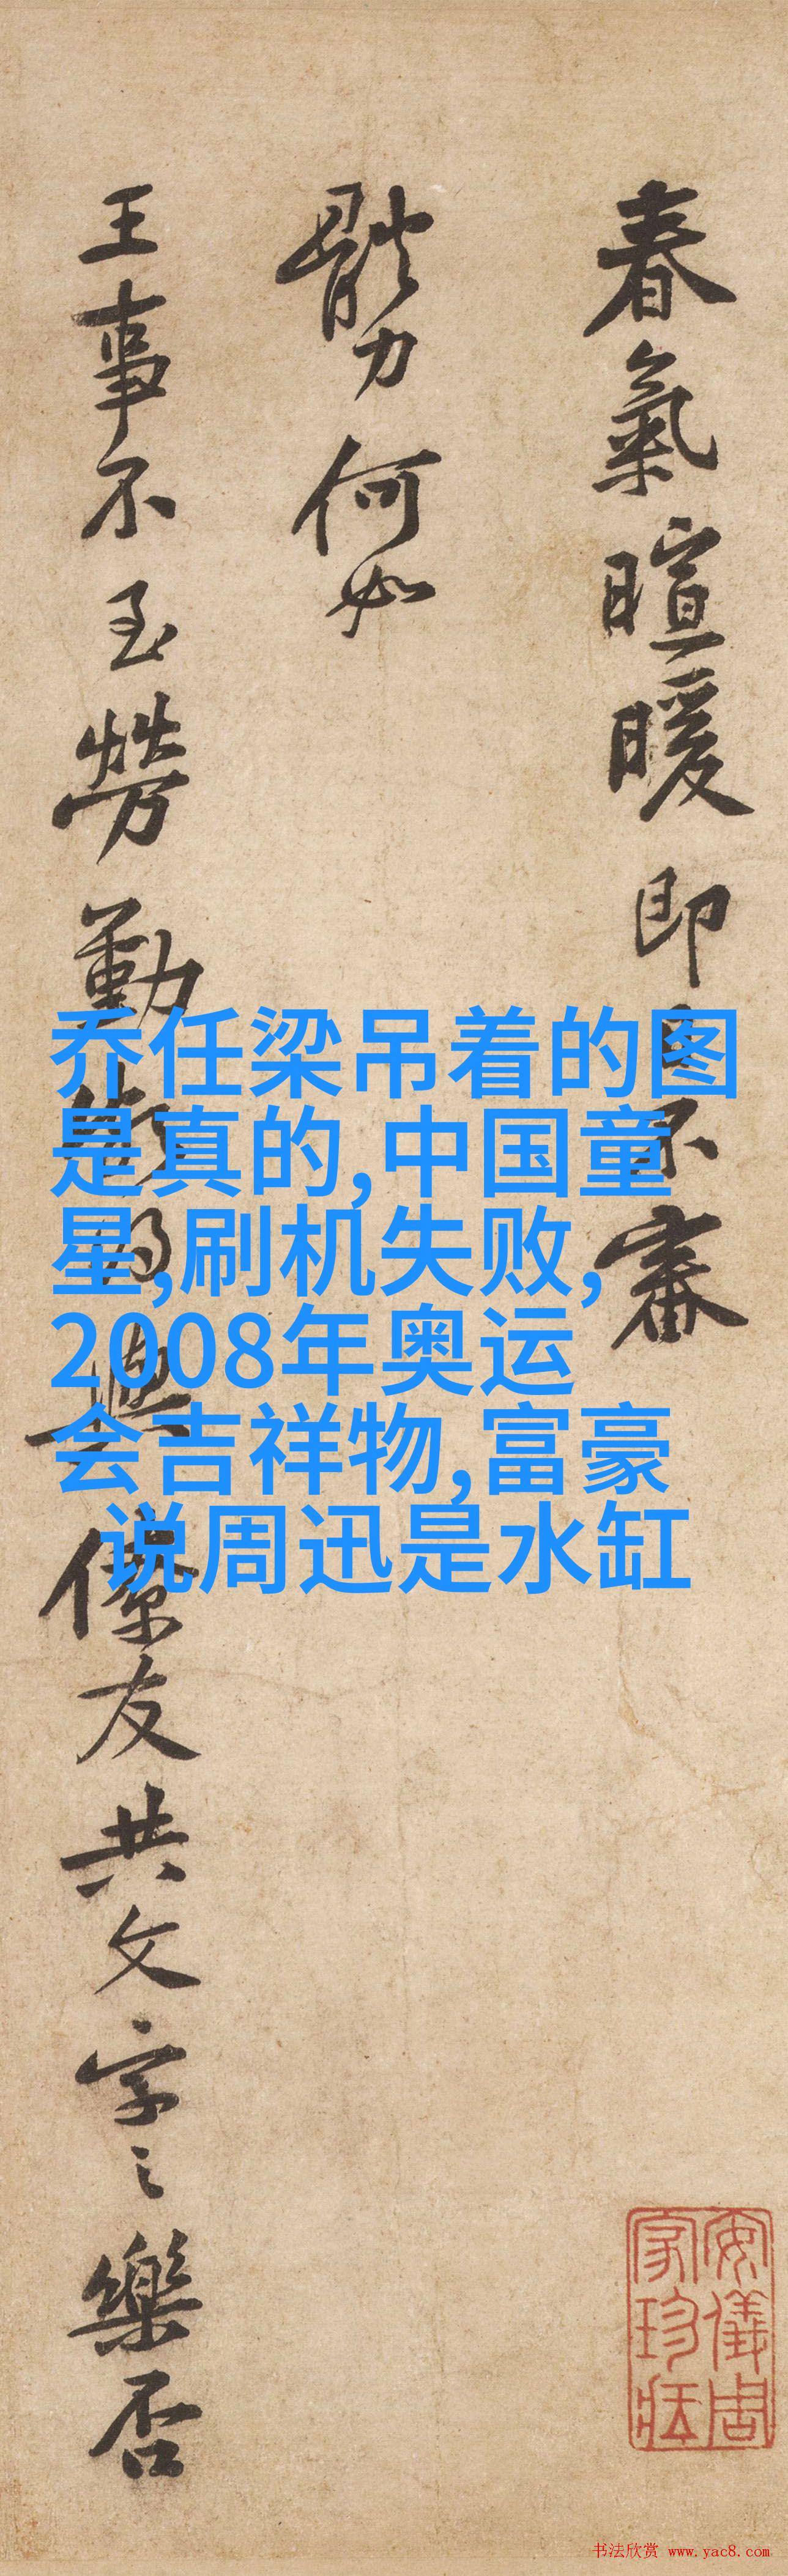 春氣暄暖即日不審
體力何如
王事不至勞勤得與僚友共文字之樂否
乔任梁吊着的图
是真的,中国童
星,刷机失败,
2008年奥运
会吉祥物,富豪
说周迅是水缸
安儀周
家珍藏
书法欣赏 www.yac8.com